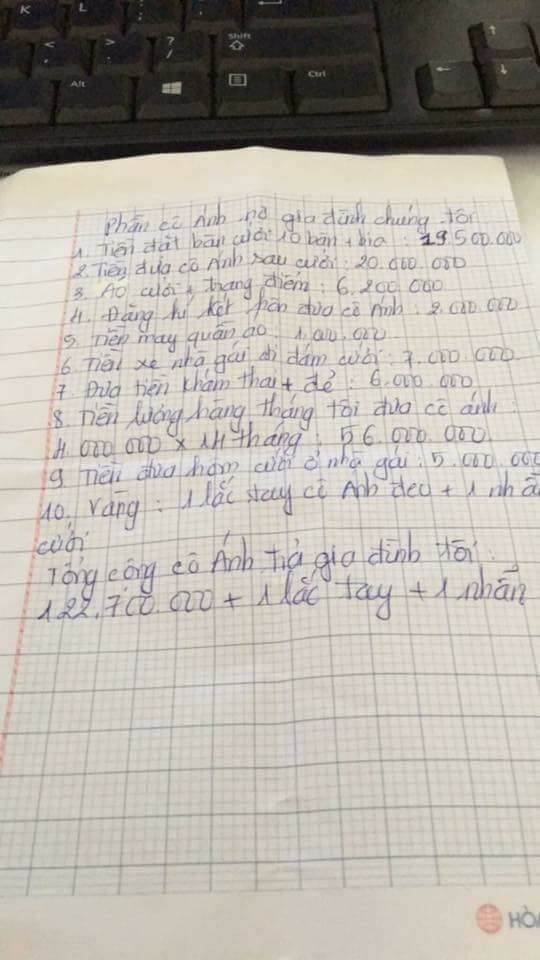 K
L
<
,
>
.
?
/
Shift
Alt
Ctrl
Phần cô Ánh nợ gia đình chúng tôi
1. Tiền đặt bàn cưới 10 bàn + bia : 19.500.000
2. Tiền đưa cô Ánh sau cưới : 20.000.000
3. Áo cưới + trang điểm : 6.200.000
4. Đăng kí kết hôn đưa cô Ánh : 2.000.000
5. Tiền may quần áo : 1.000.000
6. Tiền xe nhà gái đi đám cưới : 7.000.000
7. Đưa tiền khám thai + đẻ : 6.000.000
8. Tiền lương hàng tháng tôi đưa cô ánh :
4.000.000 x 14 tháng : 56.000.000
9. Tiền đưa hôm cưới ở nhà gái : 5.000.000
10. Vàng : 1 lắc tay cô Ánh đeo + 1 nhẫ
cưới
Tổng cộng cô Ánh trả gia đình tôi :
122.700.000 + 1 lắc tay + 1 nhẫn
HÒ